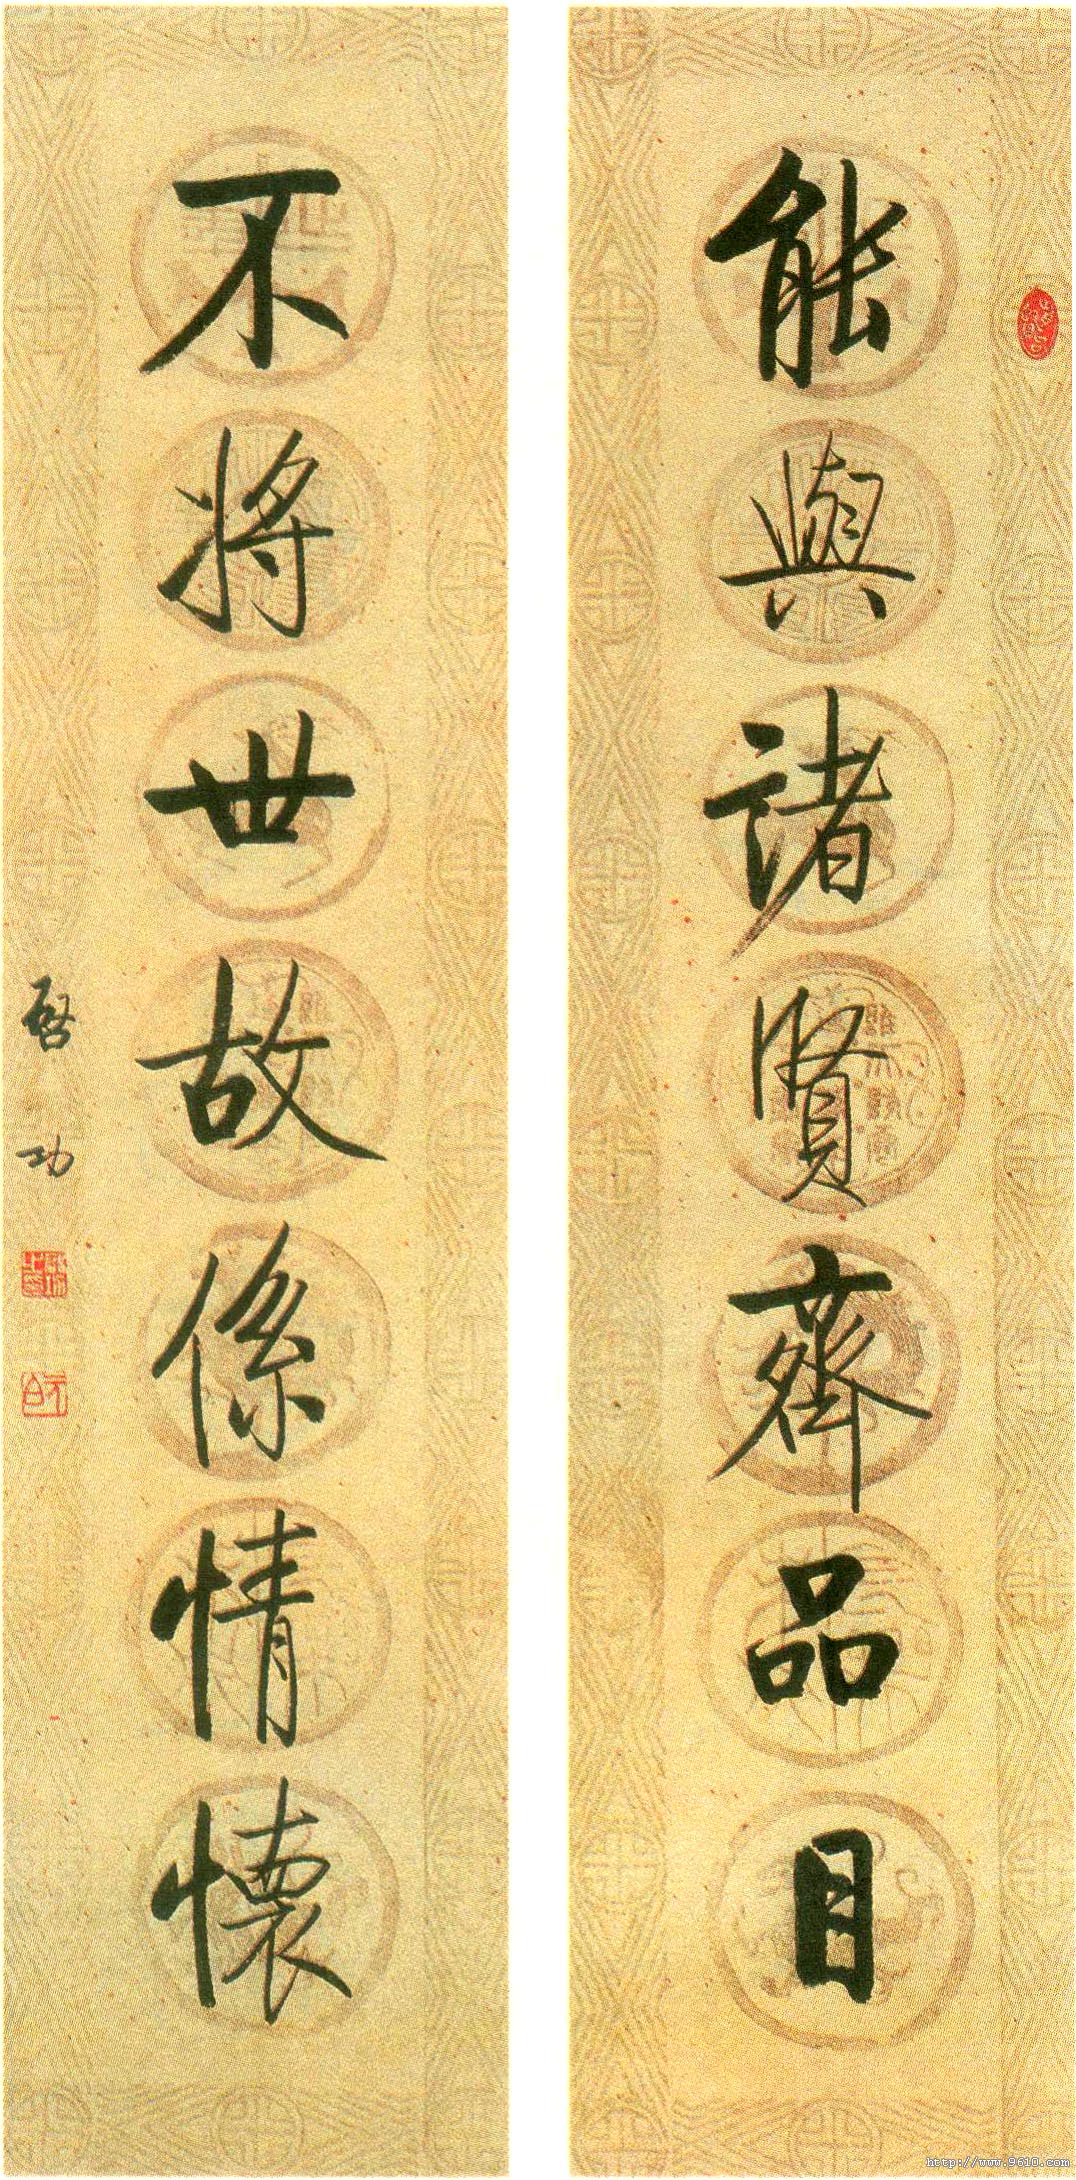 能與諸賢齊品目
不將世故係情懷
啓功
http://www.9610.com